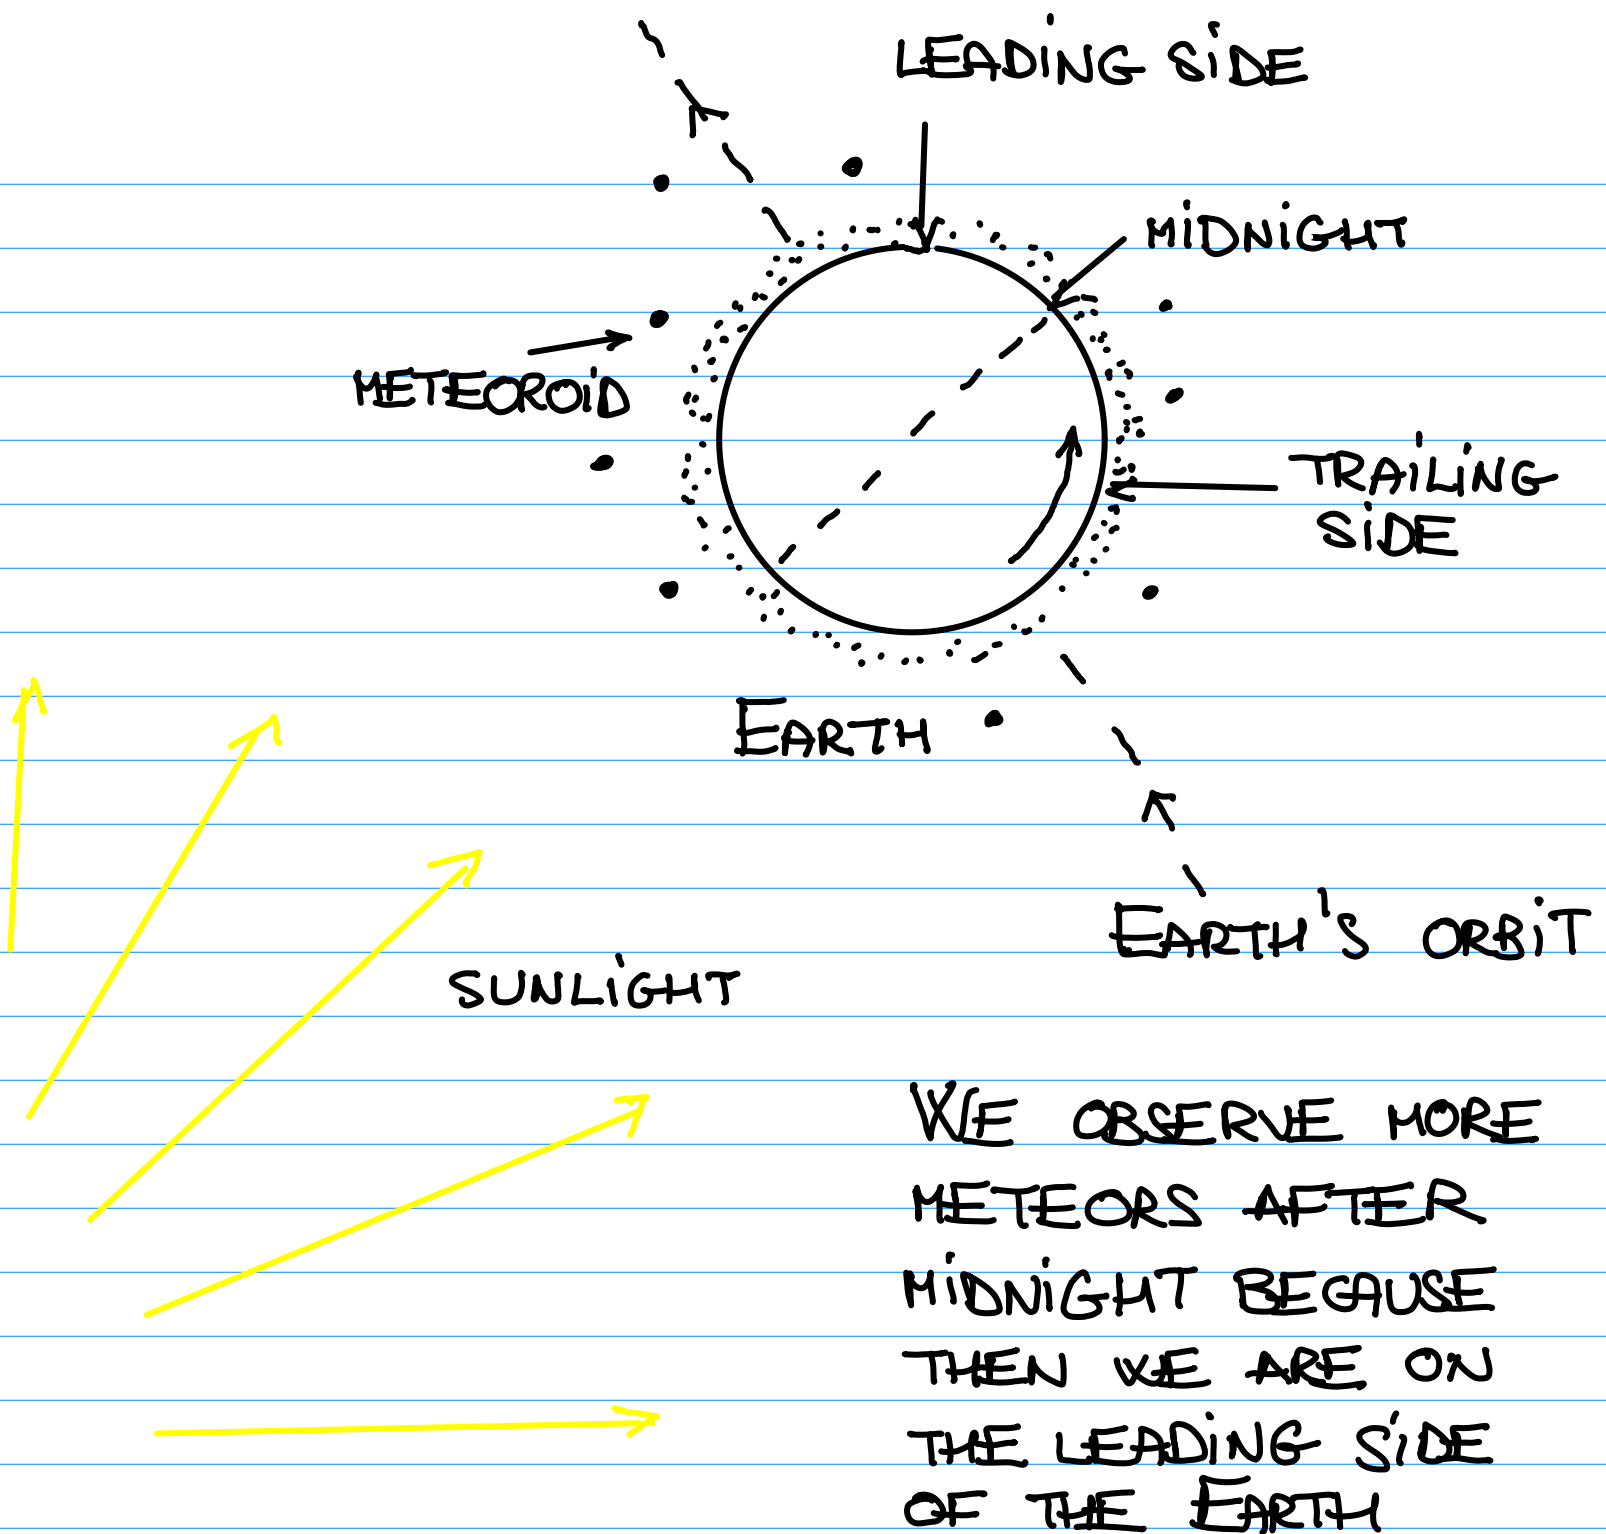 LEADING SIDE
MIDNIGHT
METEOROID
TRAILING
SIDE
EARTH
EARTH'S ORBIT
SUNLIGHT
WE OBSERVE MORE
METEORS AFTER
MIDNIGHT BECAUSE
THEN WE ARE ON
THE LEADING SIDE
OF THE EARTH